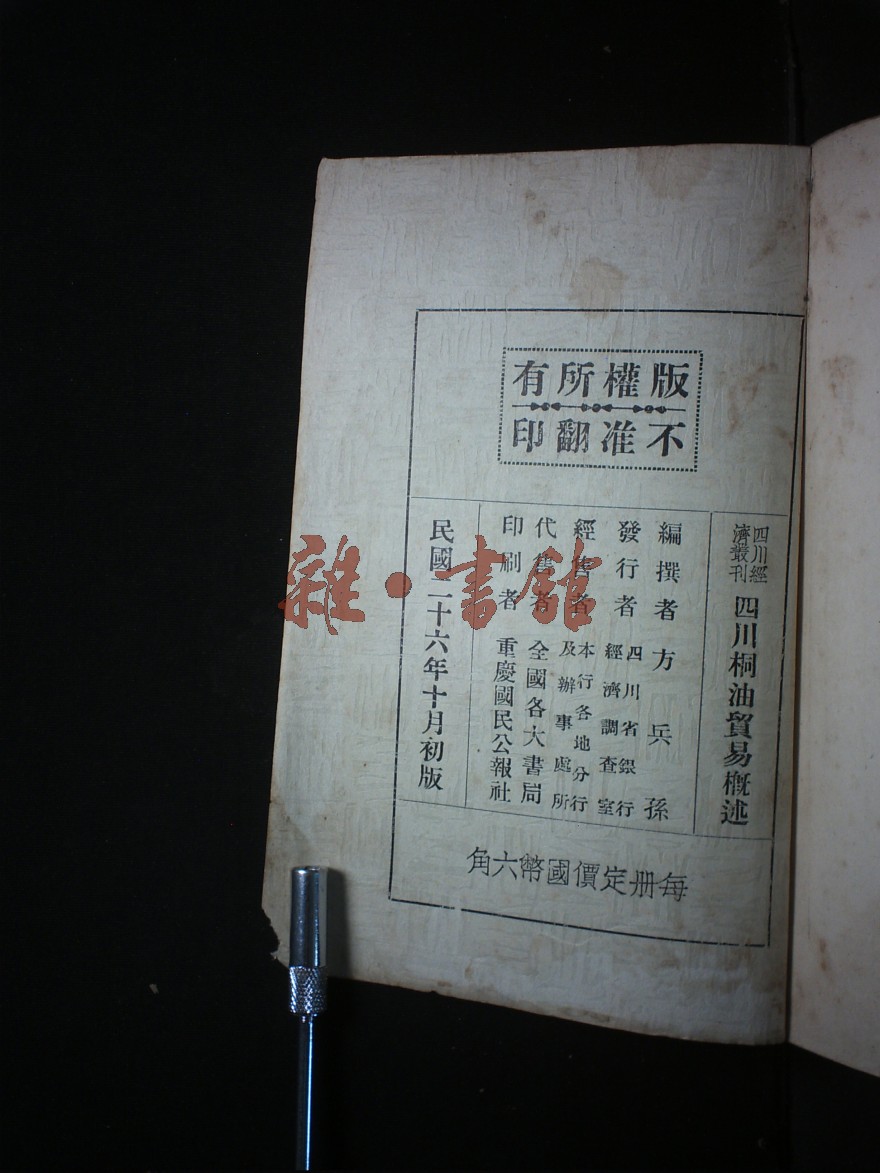 版權所有
不准翻印
四川經濟叢刊
四川桐油貿易概述
編撰者 方兵孫
發行者 四川省銀行經濟調查室
經售者 本行各地分行及辦事處所
代售者 全國各大書局
印刷者 重慶國民公報社
民國二十六年十月初版
每册定價國幣六角
雜·書館